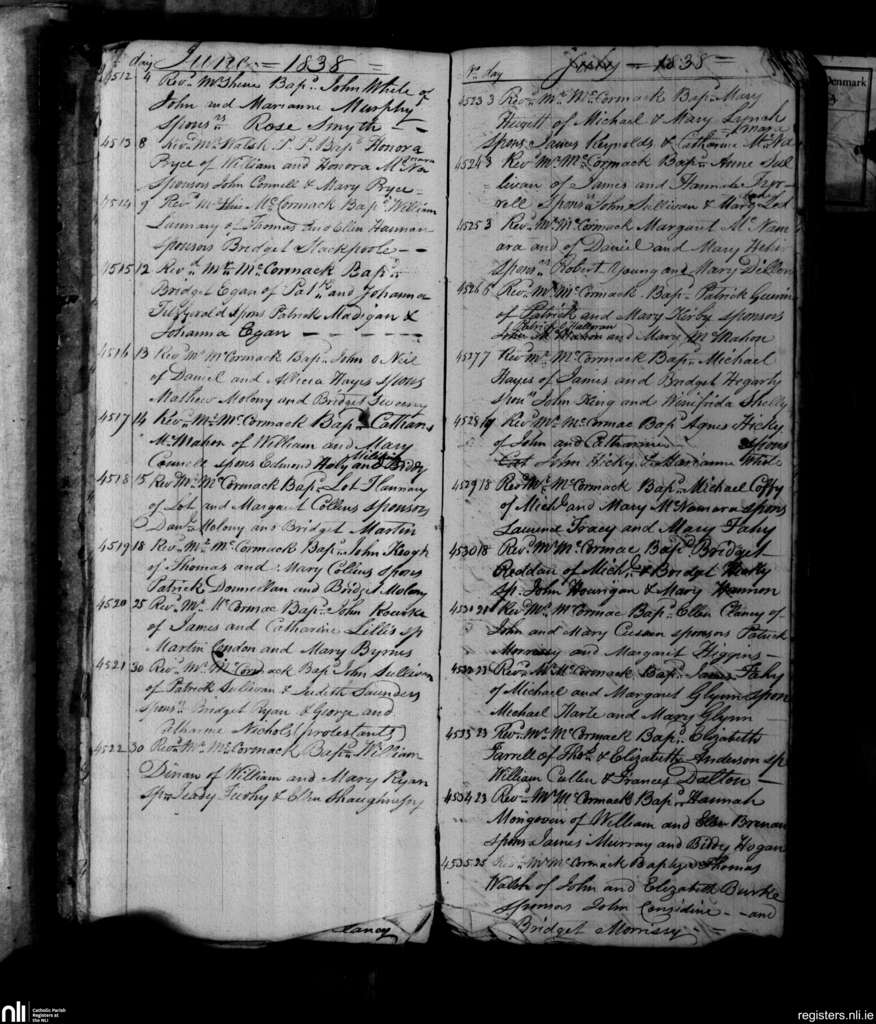 day June = 1838 =
4512 4 Revd. Mr Shine Bapd. John White of
John and Marianne Murphy
Sponsrs Rose Smyth —
4513 8 Revd. Mr Walsh P. P. Bapd. Honora
Pryce of William and Honora McNamara
Sponsors John Connell & Mary Pryce —
9 Revd. Mr McCormack Bapd. William
of Thomas and Ellen Hannan
Sponsors Bridget Stackpoole — —
4515 12 Revd. Mr. McCormack Bapd.
Bridget Egan of Patk. and Johanna
Fitzgerald spons Patrick Madigan &
Johanna Egan — — — — —
4516 13 Revd. Mr McCormack Bapd. John O Neil
of Daniel and Allicia Hayes spons
Mathew Molony and Bridget
4517 14 Revd. Mr. McCormack Bapd.
McMahon of William and Mary
spons Edmond and Biddy
4518 15 Revd. Mr. McCormack Bapd. Lot Flannary
of Lot and Margaret Collins sponsors
Danl. Molony ans Bridget Martin
4519 18 Revd. Mr. McCormack Bapd. John Keogh
of Thomas and Mary Collins spons
Patrick Donnellan and Bridgt. Molony
4520 25 Revd. Mr. McCormac Bapd. John Rourke
of James and Catharine Lillis sp
Martin Condon and Mary Byrnes
4521 30 Revd. Mr. McCormack Bapd. John Sullivan
of Patrick Sullivan & Judith Saunders
sponsrs. Bridget Ryan & George and
Catharine Nichols (protestants)
4522 30 Revd. Mr. McCormack Bapd. William
Dinan of William and Mary Ryan
sp & Ellen Shaughnessy
No. day July = 1838 =
4523 3 Revd. Mr. McCormack Bapd. Mary
of Michael & Mary Lynch
spons James Reynolds & Catharine McNamara
4524 3 Revd. Mr. McCormack Bapd. Anne Sul-
livan of James and Hannah
Spons John Sullivan & Mary
4525 3 Revd. Mr. McCormack Margaret McNam
ara and of Daniel and Mary
sponsrs Robert Young and Mary Dillon
4526 5 Revd. Mr. McCormack Bapd. Patrick Guerin
of Patrick and Mary Kirby sponsors
Patrick Halloran
John McMahon and Mary McMahon
4527 7 Revd. Mr. McCormack Bapd. Michael
Hayes of James and Bridget Hogarty
Sponrs John King and Winifrida Shelly
4528 Revd. Mr. McCormac Bapd. Agnes Hicky
of John and Catharine spons
Cat John Hicky & Marianne White
4529 18 Revd. Mr. McCormack Bapd. Michael Coffy
of Michl. and Mary McNamara spons
Laurence Tracy and Mary Fahy
4530 18 Revd. Mr McCormac Bapd. Bridget
Reddan of Michl. & Bridget
sp. John Hourigan & Mary Hannon
4531 21 Revd. Mr. McCormac Bapd. Ellen Clancy of
John and Mary sponsors Patrick
Morrissy and Margaret Higgins —
4532 22 Revd. Mr. McCormack Bapd. James Fahy
of Michael and Margaret Glynn spon
Michael Harte and Mary Glynn
4533 23 Revd. Mr. McCormack Bapd. Elizabeth
Farrell of Thos. & Elizabeth Anderson sp
William Cullen & Frances Dalton —
4534 23 Revd. Mr McCormack Bapd. Hannah
Mongovin of William and Ellen Brenan
spons James Murray and Biddy Hogan
4535 25 Revd. Mr McCormack Thomas
Walsh of John and Elizabeth Burke
sponsors John Considine — and
Bridget Morrissy
Denmark
nli Catholic Parish
Registers at
the NLI
registers.nli.ie